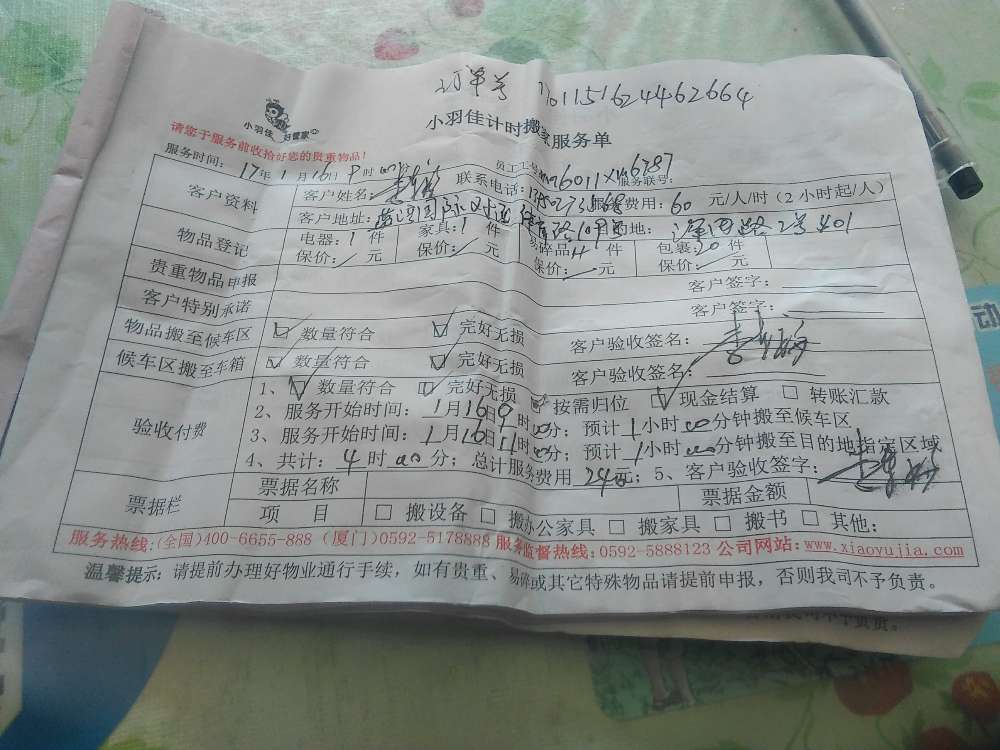 订单号 1151624462664
小羽佳 好管家
小羽佳计时搬家服务单
请您于服务前收拾好您的贵重物品!
服务时间: 17年1月16日9时00分 员工工号 服务联号:
客户资料 客户姓名: 联系电话: 服务费用: 60 元/人/时(2小时起/人)
客户地址: 目的地:
物品登记 电器: 1 件 家具: 1 件 易碎品 4 件 包裹: 30 件
保价: / 元 保价: / 元 保价: / 元 保价: / 元
贵重物品申报 客户签字:
客户特别承诺 客户签字:
物品搬至候车区 ☑ 数量符合 ☑ 完好无损 客户验收签名:
候车区搬至车箱 ☑ 数量符合 ☑ 完好无损 客户验收签名:
验收付费 1、☑ 数量符合 ☑ 完好无损 ☑ 按需归位 ☑ 现金结算 □ 转账汇款
2、服务开始时间: 1月16日9时00分; 预计1小时00分钟搬至候车区
3、服务开始时间: 1月16日11时00分; 预计1小时00分钟搬至目的地指定区域
4、共计: 4 时 00 分; 总计服务费用 240元; 5、客户验收签字:
票据栏 票据名称 票据金额
项 目 □ 搬设备 □ 搬办公家具 □ 搬家具 □ 搬书 □ 其他:
服务热线:(全国)400-6655-888 (厦门)0592-5178888 服务监督热线:0592-5888123 公司网站:www.xiaoyujia.com
温馨提示: 请提前办理好物业通行手续,如有贵重、易碎或其它特殊物品请提前申报,否则我司不予负责。
我司不予负责。